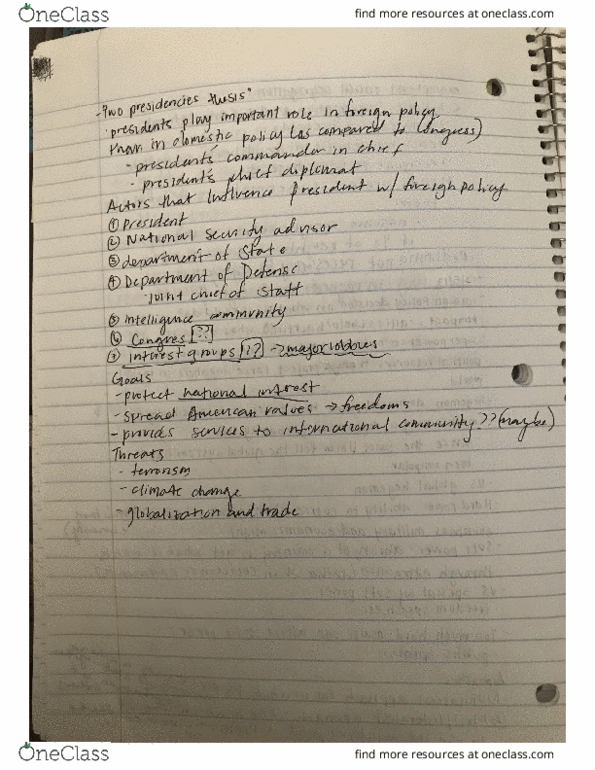 OneClass
find more resources at oneclass.com
-"Two presidencies thesis"
· presidents play important role in foreign policy
than in domestic policy (as compared to Congress)
- president's commander in chief
- president's chief diplomat
Actors that influence president w/ foreign policy
① President
② National security advisor
③ department of State
④ Department of Defense
· Joint chief of staff
⑤ Intelligence community
⑥ Congress [??]
⑦ interest groups [??] → major lobbies
Goals
- protect national interest
- spread American values → freedoms
- provides services to international community?? (maybe)
Threats
- terrorism
- climate change
- globalization and trade
OneClass
find more resources at oneclass.com